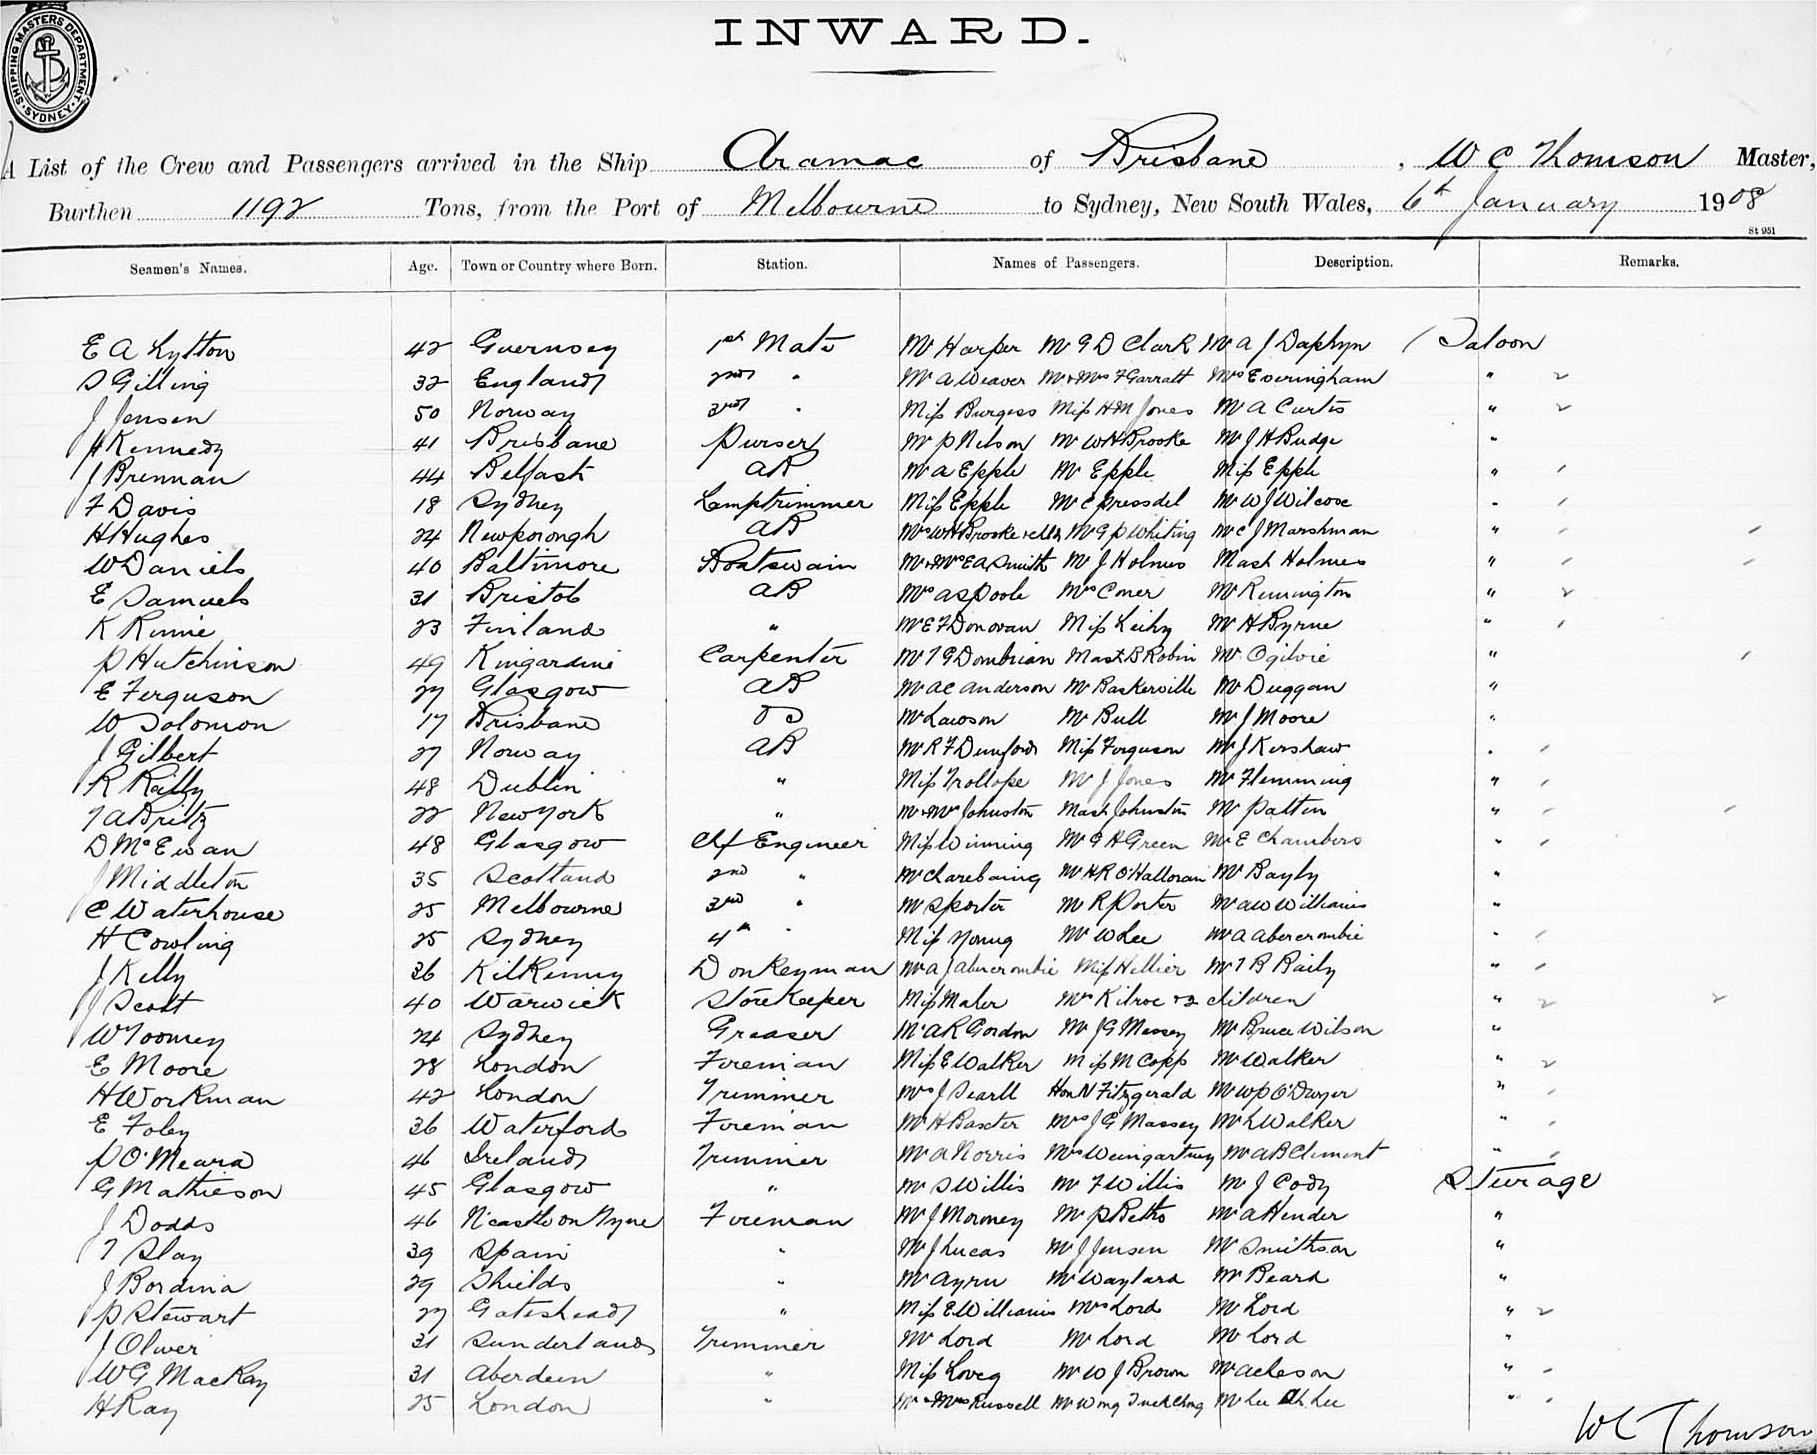 SHIPPING MASTERS DEPARTMENT · SYDNEY ·
INWARD.
A List of the Crew and Passengers arrived in the Ship Aramac of Brisbane, W C Thomson Master,
Burthen 1192 Tons, from the Port of Melbourne to Sydney, New South Wales, 6th January 1908
St 951
Seamen's Names. Age. Town or Country where Born. Station. Names of Passengers. Description. Remarks.
E A Lytton 42 Guernsey 1st Mate Mr Harper Mr G D Clark Mr A J Daphyn Saloon
S Gilling 32 England 2nd " Mr A Weaver Mr & Mrs F Garratt Mrs Everingham "
J Jensen 50 Norway 3rd " Miss Burgess Miss H M Jones Mr A Curtis "
H Kennedy 41 Brisbane Purser Mr P Nelson Mr W H Brooke Mr J H Budge "
J Brennan 44 Belfast AB Mr A Epple Mr Epple Miss Epple "
F Davis 18 Sydney Lamptrimmer Miss Epple Mr C Pressdel Mr W J Wilcose "
H Hughes 24 Newporough AB Mrs W H Brooke Mr G P Whiting Mr C J Marshman "
W Daniels 40 Baltimore Boatswain Mr & Mrs E A Smith Mr J Holmes Mast Holmes "
E Samuels 31 Bristol AB Mrs A S Poole Mrs Comer Mr Remington "
K Rinne 23 Finland " Mr E F Donovan Miss Leihy Mr H Byrne "
P Hutchinson 49 Kingardine Carpenter Mr T G Dombrian Mast B Robin Mr Ogilvie "
E Ferguson 27 Glasgow AB Mr A C Anderson Mr Baskerville Mr Duggan "
W Solomon 17 Brisbane OS Mr Lawson Mr Bull Mr J Moore "
J Gilbert 27 Norway AB Mr R F Dunford Miss Ferguson Mr J Kershaw "
R Rally 48 Dublin " Miss Trollope Mr J Jones Mr Flemming "
T A Britz 22 New York " Mr & Mrs Johnston Mast Johnston Mr Patten "
D McEwan 48 Glasgow Chf Engineer Miss Winning Mr G H Green Mr E Chambers "
J Middleton 35 Scotland 2nd " Mr Mr H R O'Halloran Mr Bayly "
C Waterhouse 25 Melbourne 3rd " Mr S Porter Mr R Porter Mr A W Williams "
H Cowling 25 Sydney 4th " Miss Young Mr W Lee Mr A Abercrombie "
J Kelly 36 Kilkenny Donkeyman Mr A J Abercrombie Miss Hellier Mr T B Raily "
J Scott 40 Warwick Storekeeper Miss Maler Mrs Kilroe & 2 children "
W Toomey 24 Sydney Greaser Mr A R Gordon Mr J G Massey Mr Bruce Wilson "
E Moore 28 London Fireman Miss E Walker Miss M Copp Mr Walker "
H Workman 42 London Trimmer Mrs J Searll Hon N Fitzgerald Mr W P O'Dwyer "
E Foley 36 Waterford Fireman Mr H Baxter Mrs J G Massey Mr L Walker "
P O'Meara 46 Ireland Trimmer Mr A Norris Mrs Weingartney Mr A B Clement "
G Mathieson 45 Glasgow " Mr S Willis Mr F Willis Mr J Cody Steerage
J Dodds 46 N'castle on Tyne Fireman Mr J Moroney Mr P Betts Mr A Hender "
T Slay 39 Spain " Mr J Lucas Mr J Jensen Mr Smithson "
J Bordina 29 Shields " Mr Ayru Mr Waylard Mr Beard "
P Stewart 27 Gateshead " Miss E Williams Mrs Lord Mr Lord "
J Oliver 31 Sunderland Trimmer Mr Lord Mr Lord Mr Lord "
W G MacKay 31 Aberdeen " Miss Loveg Mr W J Brown Mr Acleson "
H Ray 25 London " Mr & Mrs Russell Mr Wong Mr Lee Ah Lee "
W C Thomson